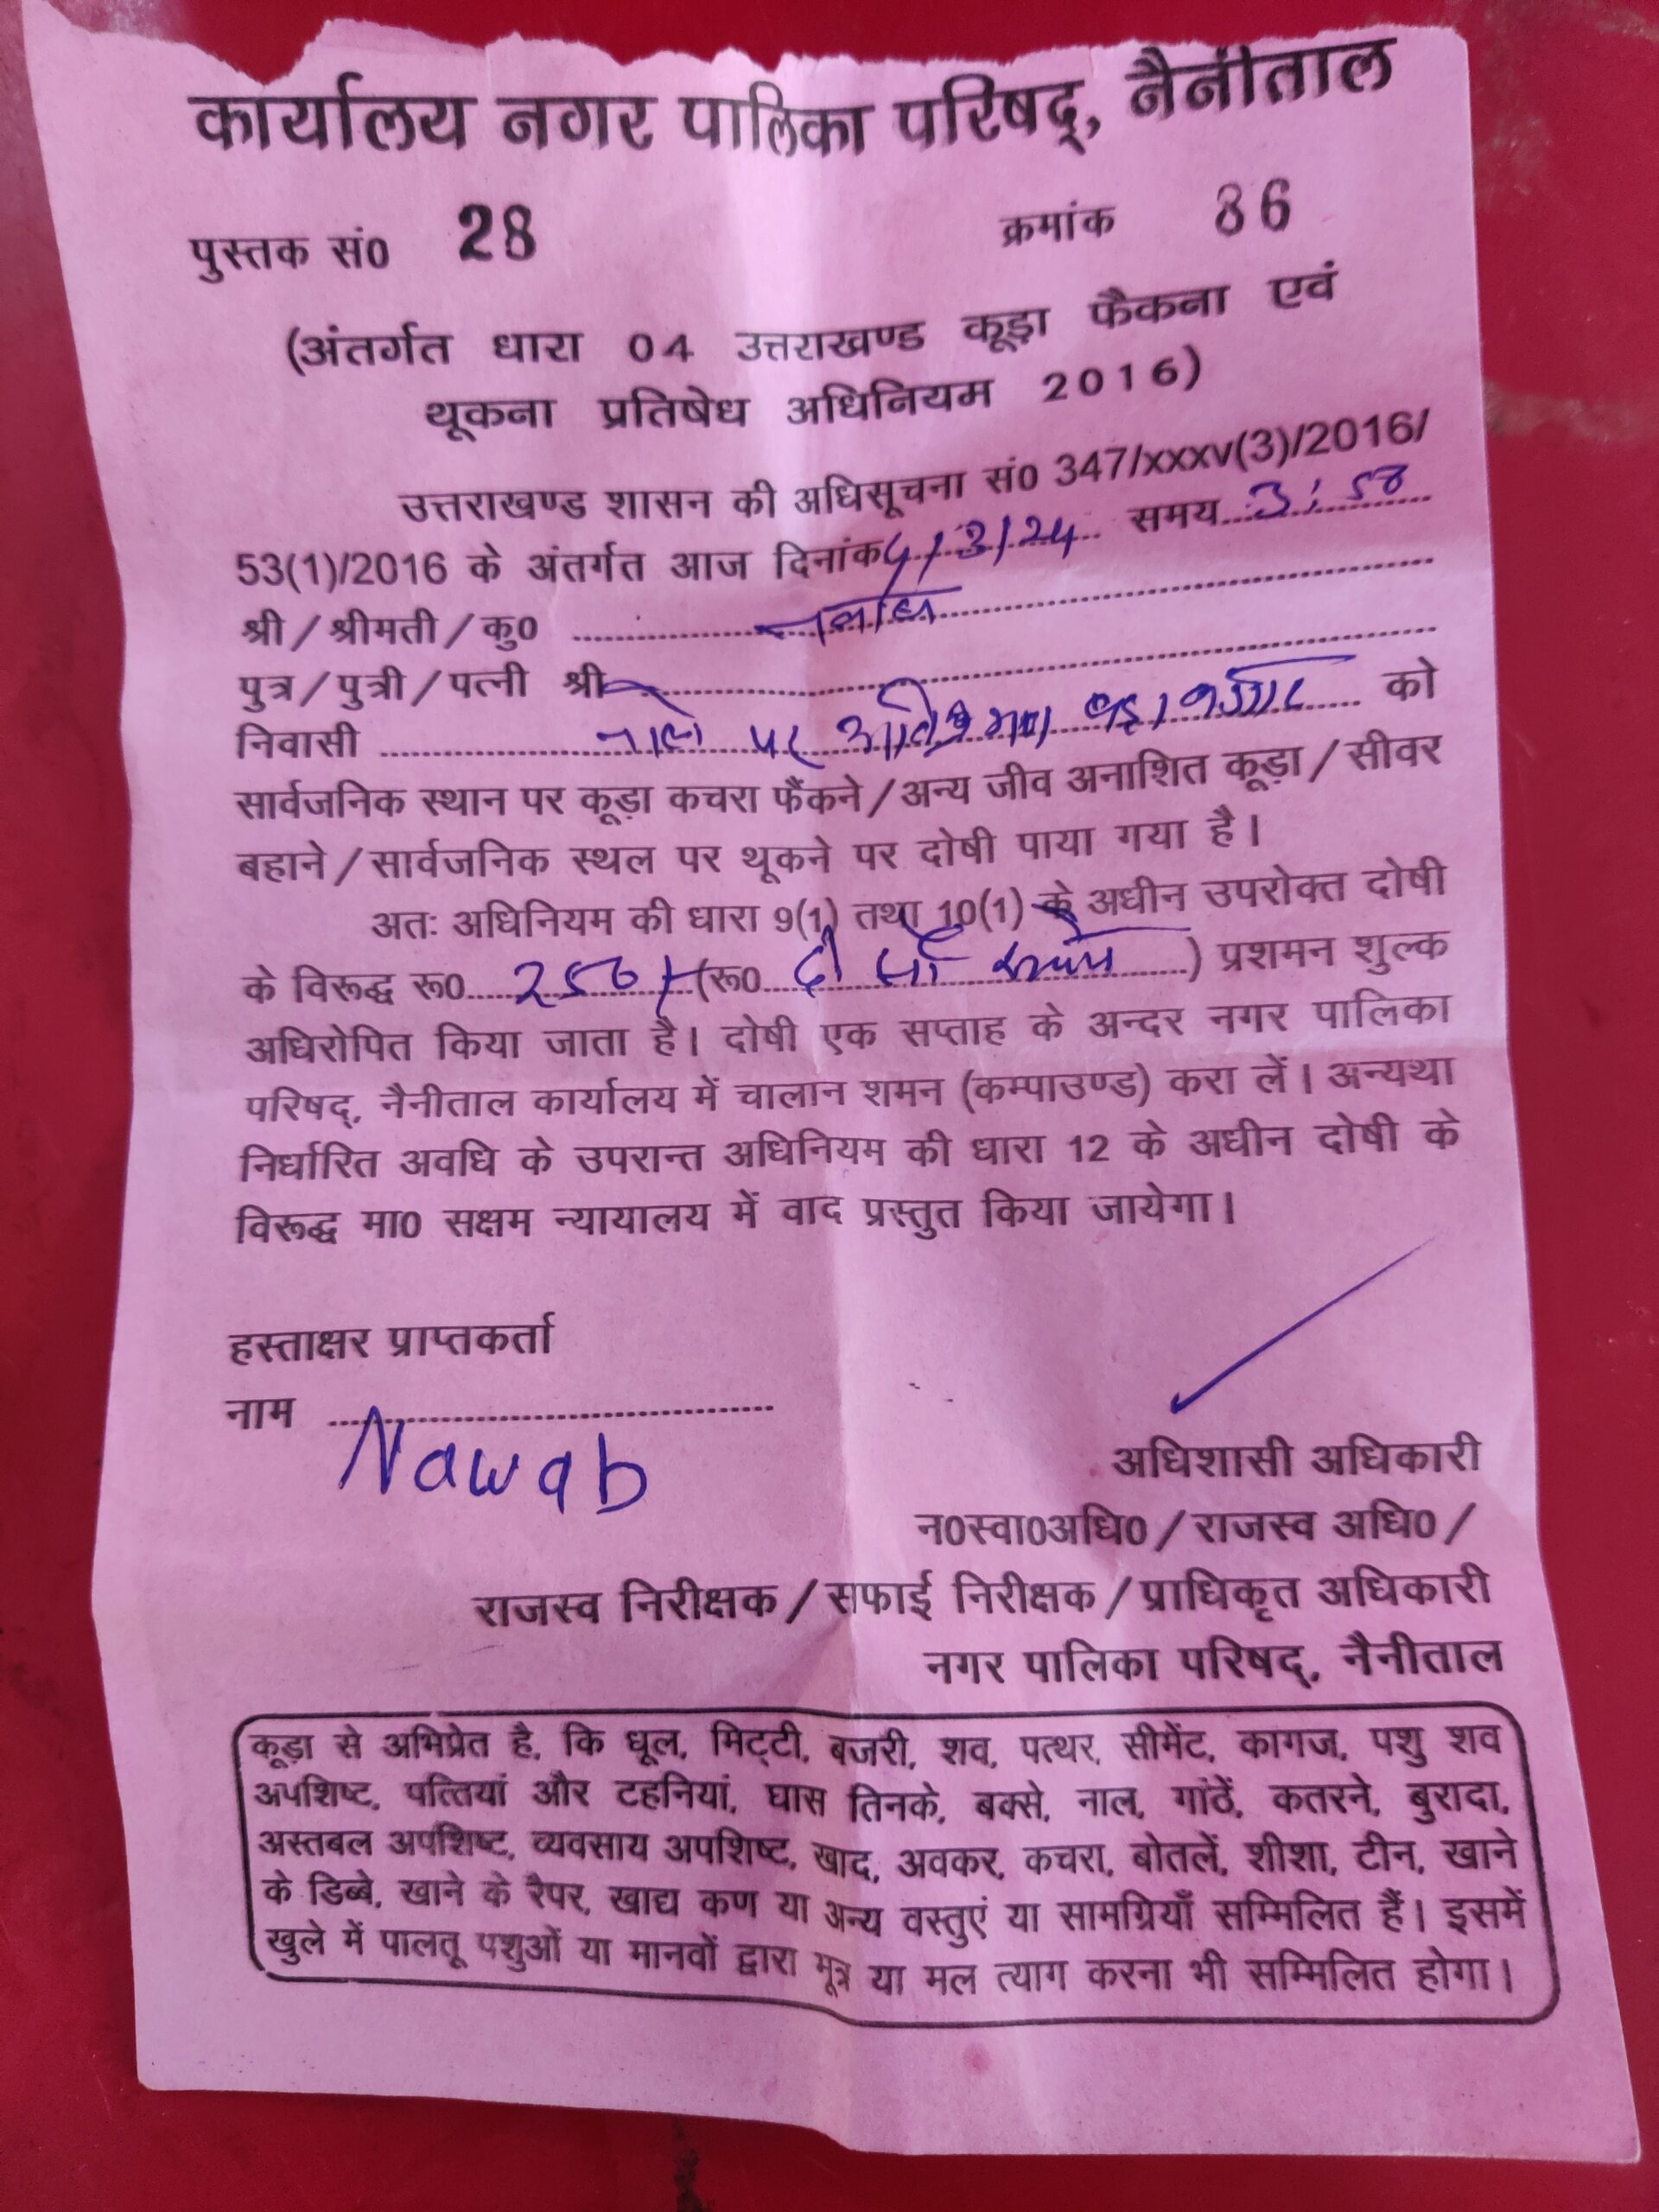 कार्यालय नगर पालिका परिषद्, नैनीताल
पुस्तक सं0 28 क्रमांक 86
(अंतर्गत धारा 04 उत्तराखण्ड कूड़ा फैकना एवं
थूकना प्रतिषेध अधिनियम 2016)
उत्तराखण्ड शासन की अधिसूचना सं0 347/xxxv(3)/2016/
53(1)/2016 के अंतर्गत आज दिनांक 4/3/24 समय 3:50
श्री/श्रीमती/कु0
पुत्र/पुत्री/पत्नी श्री
निवासी नाले पर बड़ा बाजार को
सार्वजनिक स्थान पर कूड़ा कचरा फैंकने/अन्य जीव अनाशित कूड़ा/सीवर
बहाने/सार्वजनिक स्थल पर थूकने पर दोषी पाया गया है।
अतः अधिनियम की धारा 9(1) तथा 10(1) के अधीन उपरोक्त दोषी
के विरूद्ध रू0 (रू0 दो सौ ) प्रशमन शुल्क
अधिरोपित किया जाता है। दोषी एक सप्ताह के अन्दर नगर पालिका
परिषद्, नैनीताल कार्यालय में चालान शमन (कम्पाउण्ड) करा लें। अन्यथा
निर्धारित अवधि के उपरान्त अधिनियम की धारा 12 के अधीन दोषी के
विरूद्ध मा0 सक्षम न्यायालय में वाद प्रस्तुत किया जायेगा।
हस्ताक्षर प्राप्तकर्ता
नाम
Nawab
अधिशासी अधिकारी
न0स्वा0अधि0/राजस्व अधि0/
राजस्व निरीक्षक/सफाई निरीक्षक/प्राधिकृत अधिकारी
नगर पालिका परिषद्, नैनीताल
कूड़ा से अभिप्रेत है, कि धूल, मिट्टी, बजरी, शव, पत्थर, सीमेंट, कागज, पशु शव
अपशिष्ट, पत्तियां और टहनियां, घास तिनके, बक्से, नाल, गांठें, कतरने, बुरादा,
अस्तबल अपशिष्ट, व्यवसाय अपशिष्ट, खाद, अवकर, कचरा, बोतलें, शीशा, टीन, खाने
के डिब्बे, खाने के रैपर, खाद्य कण या अन्य वस्तुएं या सामग्रियाँ सम्मिलित हैं। इसमें
खुले में पालतू पशुओं या मानवों द्वारा मूत्र या मल त्याग करना भी सम्मिलित होगा।